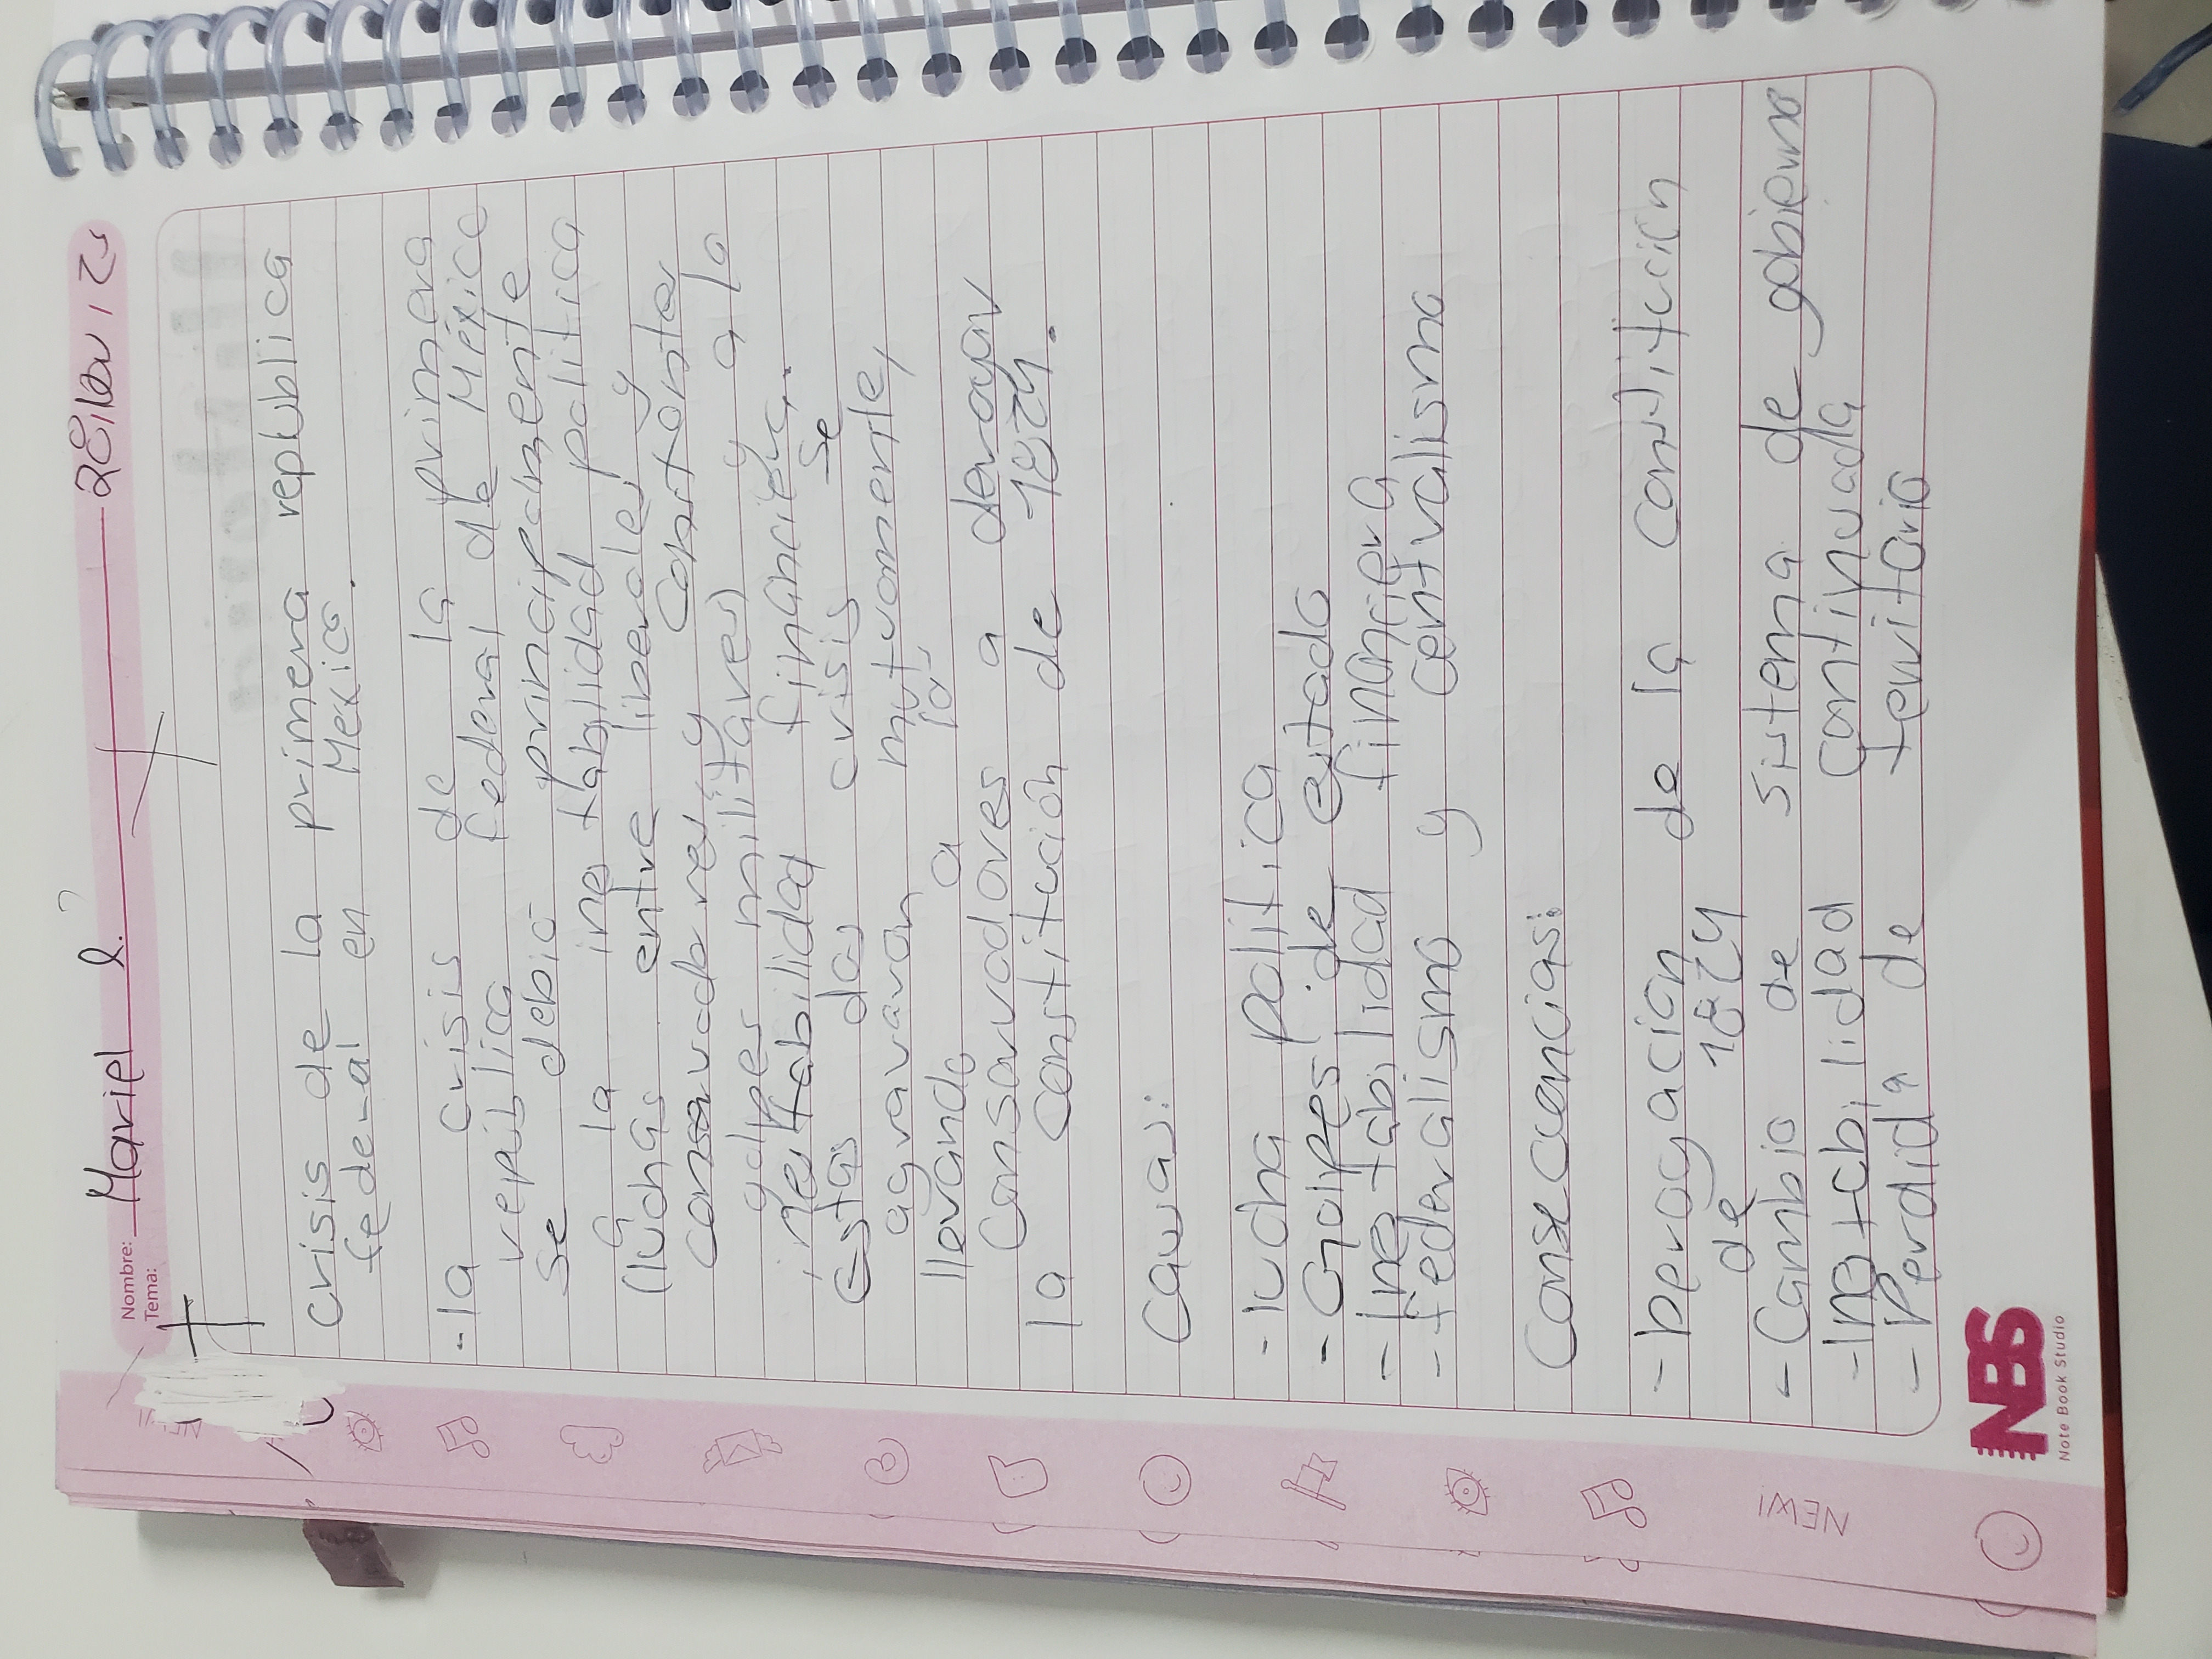 Nombre: Mariel L.
Tema:
Crisis de la primera republica
federal en Mexico.
-la crisis de la primera
republica federal de México
se debió principalmente
a la inestabilidad politica
(luchas entre liberales y
conservadores y constantes
golpes militares) y a la
inestabilidad financiera.
Estas dos crisis se
agravaron mutuamente,
llevando a los
Conservadores a derogar
la constitución de 1824.
Causas:
- lucha politica
- Golpes de estado
- Inestabilidad financiera
- federalismo y centralismo
Consecuencias:
- Derogación de la constitución
de 1824
- Cambio de sistema de gobierno
- Inestabilidad continuada
- Perdida de territorio
NBS
Note Book Studio
NEW!